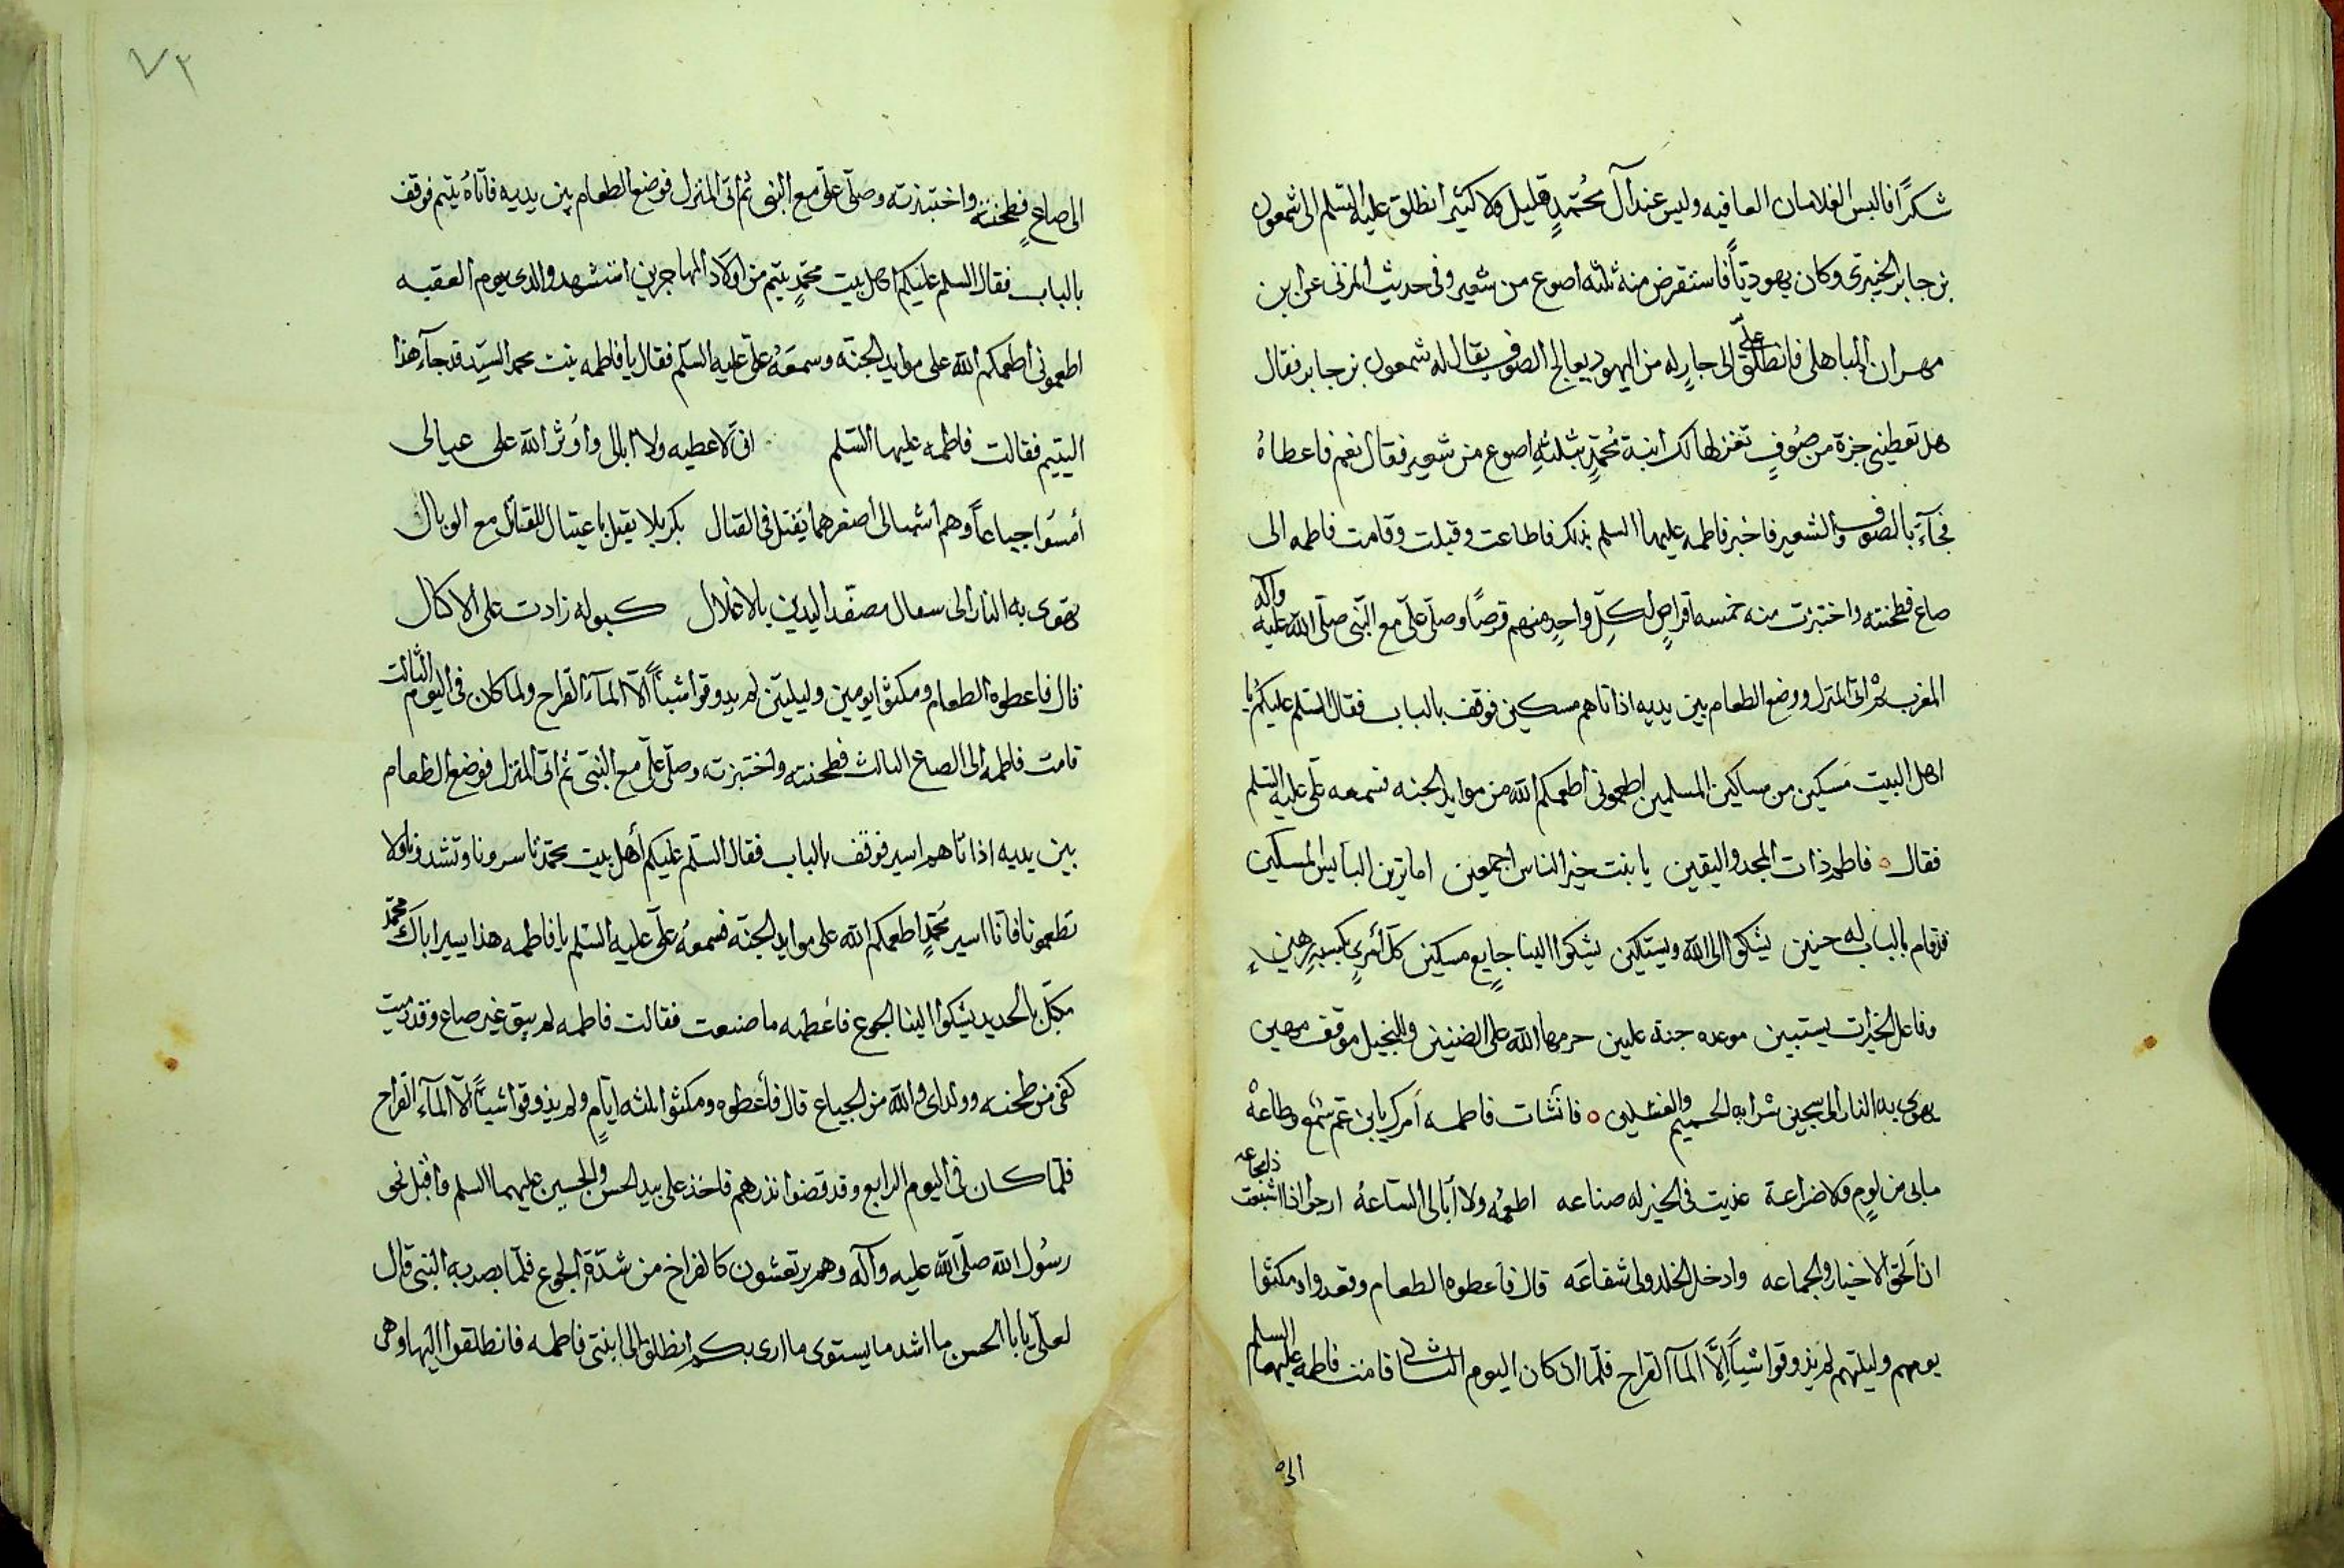 شكرًا فالبس الغلامان العافيه وليس عند آل مُحمّدٍ قليل ولا كثير انطلق عليه السّلم الى شمعون
بن جابر الخيبرى وكان يهوديّاً فاستقرض منه ثلثه اصوع من شعير وفى حديث المزنى عن ابن
مهران الباهلى فانطلق علىّ الى جارٍ له من اليهود يعالج الصوف يقال له شمعون بن جابر فقال
هل تعطينى جزة من صُوفٍ تغزلها لك ابنة مُحمّدٍ بثلثهِ اصوع من شعير فقال نعم فاعطاهُ
فجآءَ بالصّوف والشعير فاخبر فاطمه عليها السلم بذلك فاطاعت وقبلت وقامت فاطمه الى
صاع فطحنته واختبزت منه خمسه اقراصٍ لكلّ واحدٍ منهم قرصًا وصلّى علىّ مع النّبى صلّى الله عليه وآله
المغرب ثمّ اتى المنزل ووضع الطعام بين يديه اذ اتاهم مسكين فوقف بالباب فقال السّلم عليكُم يا
اهل البيت مسكين من مساكين المسلمين اطعمونى اطعمكم الله من موايد الجنه فسمعه علّى عليه السّلم
فقال فاطم ذات المجد واليقين يا بنت خير الناس اجمعين اما ترين البآيس المسكين
قد قام بالباب له حنين يشكوا الى الله ويستكين يشكوا الينا جايع مسكين كلّ أمرىٍ بكسبهِ رهين
وفاعل الخيرات يستبين موعده جنة عليين حرمها الله على الضنين وللبخيل موقف مهين
يهوى به النار الى سجين شرابه الحميم والغسلين فانشات فاطمه أمرك يا بن عم سمع وطاعهْ
ما بى من لومٍ ولا ضراعة غذيت فى الخير له صناعه اطعمُه ولا أبالى السّاعهُ ارجوا اذا اشبعت ذا مجاعه
ان الحق الاخيار والجماعه وادخل الخلد ولى شفاعَه قال فاعطوه الطعام ومكثوا
يومهم وليلتهم لم يذوقوا شيأً اِلَّا المآ القراح فلمّا ان كان اليوم الثانى قامت فاطمه عليها السلم
الى
٧٣
الى صاعٍ فطحنته واختبزته وصلّى علىّ مع النبى ثم اتى المنزل فوضع الطعام بين يديه فاتاهُ يتيم فوقف
بالباب فقال السلم عليكم اهل بيت محمّدٍ يتيم من اولاد المهاجرين استشهد والدى يوم العقبه
اطعمونى اطعمكم الله على موايد الجنّه وسمعَهُ علىّ عليه السّلم فقال يا فاطمه بنت محمد السيّد قد جآء هذا
اليتيم فقالت فاطمه عليها السّلم انى لاعطيه ولا ابالى واؤثر الله على عيالى
أمسَوا جياعاً وهم اشبالى اصغرهما يقتل فى القتال بكربلا يقتل باغتيال للقاتل مع الوبال
يهوى به النار الى سفال مصفّد اليدين بالاغلال كبوله زادت على الاكبال
قال فاعطوه الطعام ومكثوا يومين وليلتين لم يدوقوا شيأً الّا المآء القراح ولما كان فى اليوم الثالث
قامت فاطمه الى الصاع الثالث فطحنته واختبزته وصلّى علىّ مع النّبى ثم اتى المنزل فوضع الطعام
بين يديه اذ اتاهم اسير فوقف بالباب فقال السّلم عليكم أهل بيت محمّد تاسرونا وتشدونا ولا
تطعمونا فانا اسير مُحمّدٍ اطعمكم الله على موايد الجنّه فسمعهُ علىّ عليه السّلم يا فاطمه هذا يسير اباك محمّد
مكبّل بالحديد يشكوا الينا الجوع فأعطيه ما صنعت فقالت فاطمه لم يبق غير صاع وقد دميت
كفى من طحنه وولداى والله من الجياع قال فأعطوه ومكثوا ثلثه ايّامٍ ولم يذوقوا شيأً الّا المآء القراح
فلمّا كان فى اليوم الرابع وقد قضوا نذرهم فاخذ على بيد الحسن والحسين عليهما السلم واقبل نحو
رسُول الله صلّى الله عليه وآله وهم يرتعشون كالفراخ من شدّة الجوع فلمّا بصر به النبى قال
لعلىّ يا با الحسن ما اشد ما يستوى ما ارى بكم انطلق الى ابنتى فاطمه فانطلقوا اليها وهى